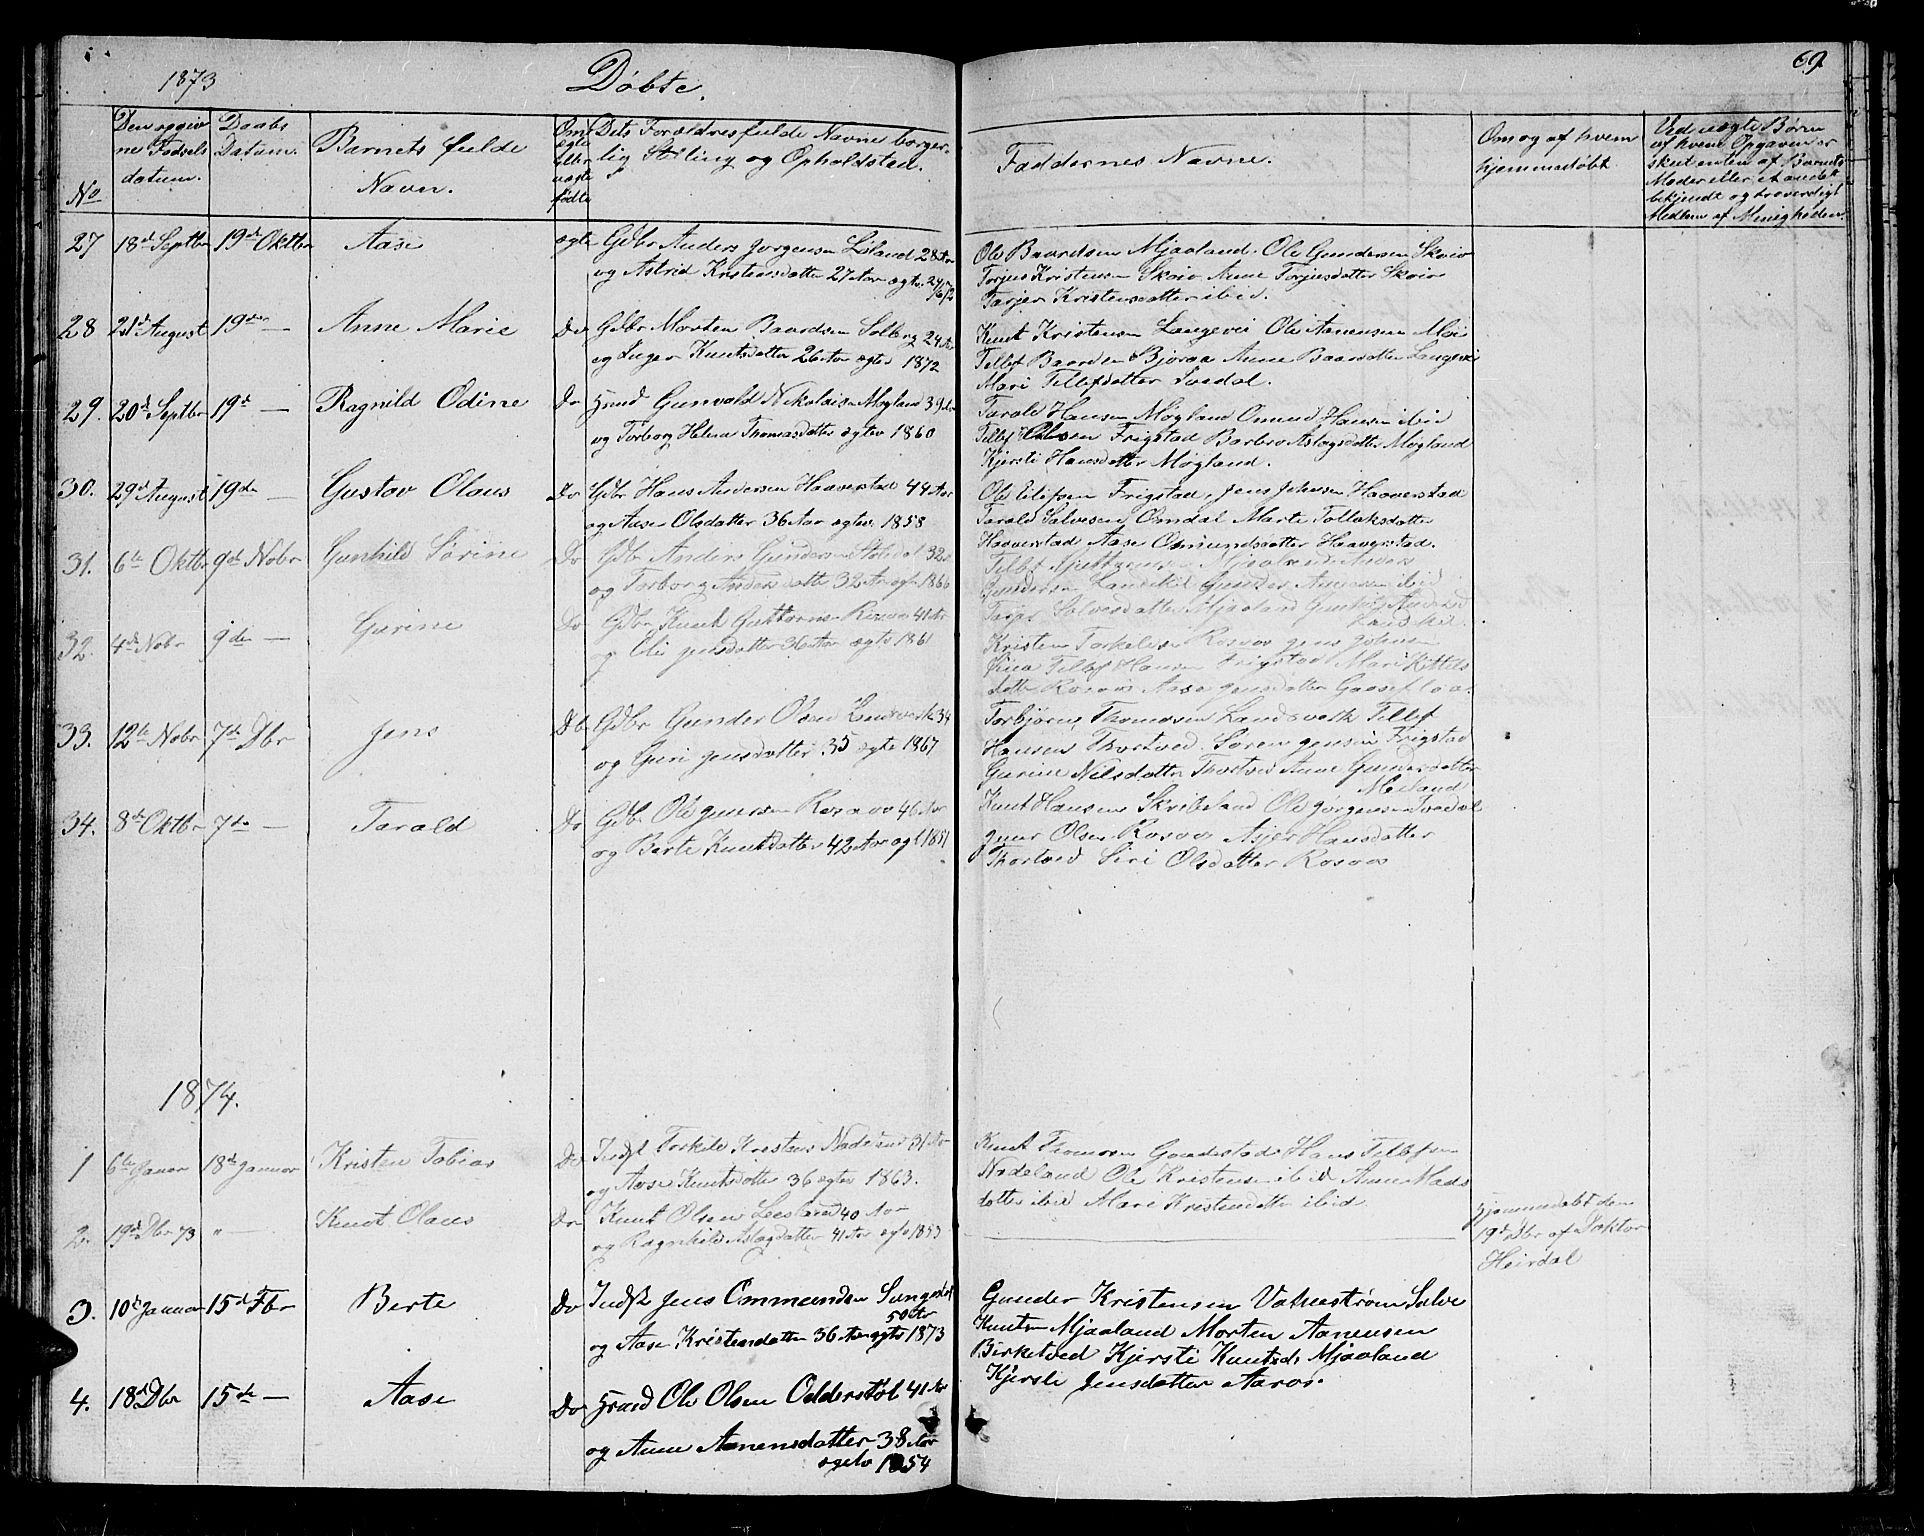 1873
Døbte.
69
No
Den opgivne Fødselsdatum.
Daabs Datum.
Barnets fulde Navn.
Om ægte eller uægte født
Dets Forældres fulde Navne borgerlig Stilling og Opholdsted.
Faddernes Navne.
Om og af hvem hjemmedøbt
Ved uægte Børn af hvem Opgaven er skeet enten af Barnets Moder eller et andet bekjendt og troværdigt Medlem af Menigheden.
27 18d Septbr 19de Oktbr Aase ægte Gdbr Anders Jorgensen Leland 28 Aar
og Astrid Kristensdatter 27 Aar ægtev.
Ole Baardsen Mjaaland. Ole Gundersen Skeie
Torjus Kristensen Skeie Anne Torjusdatter Skeie
Tarjer Kristensdatter ibid.
28 21d August 19de — Anne Marie Do Gdbr Morten Baardsen Solberg 24 Aar
og Inger Knutsdatter 26 Aar ægtev 1872
Knut Kristensen Langevei Ole Aanensen Moi
Tellef Baardsen Bjoraa Anne Baardsdatter Langevei
Mari Tellefsdatter
29. 20d Septbr 19d — Ragnild Odine Do Gunvald Nikolaisen Mogland 39 Aar
og Torborg Helene Thomasdatter ægtev 1860
Tarald Hansen Mogland Omund Hansen ibid
Tellef Olsen Frigstad Barbro Aslagsdatter Mogland
Kjersti Hansdatter Mogland.
30. 29d August 19de — Gustav Olaus Do Gdbr Hans Andersen Haaverstad 44 Aar
og Aase Olsdatter 36 Aar ægtev. 1858
Ole Ellefsen Frigstad, Jens Johnsen Haaverstad
Tarald Salvesen Omdal Marte Tollaksdatter
Haaverstad Aase Osmundsdatter Haaverstad.
31. 6te Oktbr 9de Nobr Gunhild Sørine Do Gdbr Anders Gundersen 32
og Torborg Andersdatter 32 Aar ægtv 1866
Gundersen Gunder Aanensen ibid
Salvesdatter Mjaaland
32. 4de Nobr 9de — Gurine Do Gdbr Knut Guttormsen Rosaas 41 Aar
og Oli Jensdatter 36 Aar ægtev 1861
Kristen Torkelsen Rosaas Jens Johnsen
Tellef Hansen Frigstad Mari Kittels
datter Rosaas Aase Jensdatter Gaaseflaa
33. 12te Nobr 7de Dbr Jens Do Gdbr Gunder Olsen Landsverk 34
og Guri Jensdatter 35 ægte 1867
Torbjørn Thomasen Landsverk Tellef
Hansen Thortved Søren Jensen Frigstad
Gurine Nilsdatter Thortved Anne Gundersdatter
34. 8de Oktbr 7de — Tarald Do Gdbr Ole Rosaas 46 Aar
og Berte Knutsdatter 42 Aar ægt 1851
Knut Hansen Skribeland Ole Jorgensen
Olsen Rosaas Asjer Hansdatter
Thortved Siri Olsdatter Rosaas
1874.
1 6te Januar 18de Januar Kristen Tobias Do Indst Torkild Kristens Nodeland 31 Aar
og Aase Knutsdatter 36 ægtev 1863.
Knut Thomsen Hans Tellefsen
Nodeland Ole Kristensen ibid Anne Mads
datter ibid Mari Kristensdatter ibid
2. 19de Dbr 73 " — Knut Olaus Do Knut Olsen 40 Aar
og Ragnhild Aslagdatter 41 Aar ægtv 1853
Hjemmedøbt den
19d Dbr af Doktor
Heirdal
3. 10de Januar 15d Fbr Berte Do Indst Jens Ommundsen
50 Aar
og Aase Kristensdatter 36 Aar ægtev 1873
Gunder Kristensen Salve
Knutsen Mjaaland Morten Aanensen
Birketved Kjersti Knutsd. Mjaaland
Kjersti Jensdatter Aaros.
4. 18d Dbr 15de — Aase Do Ole Olsen Odderstøl 41 Aar
og Anne Aanensdatter 38 Aar
ægtev 1854